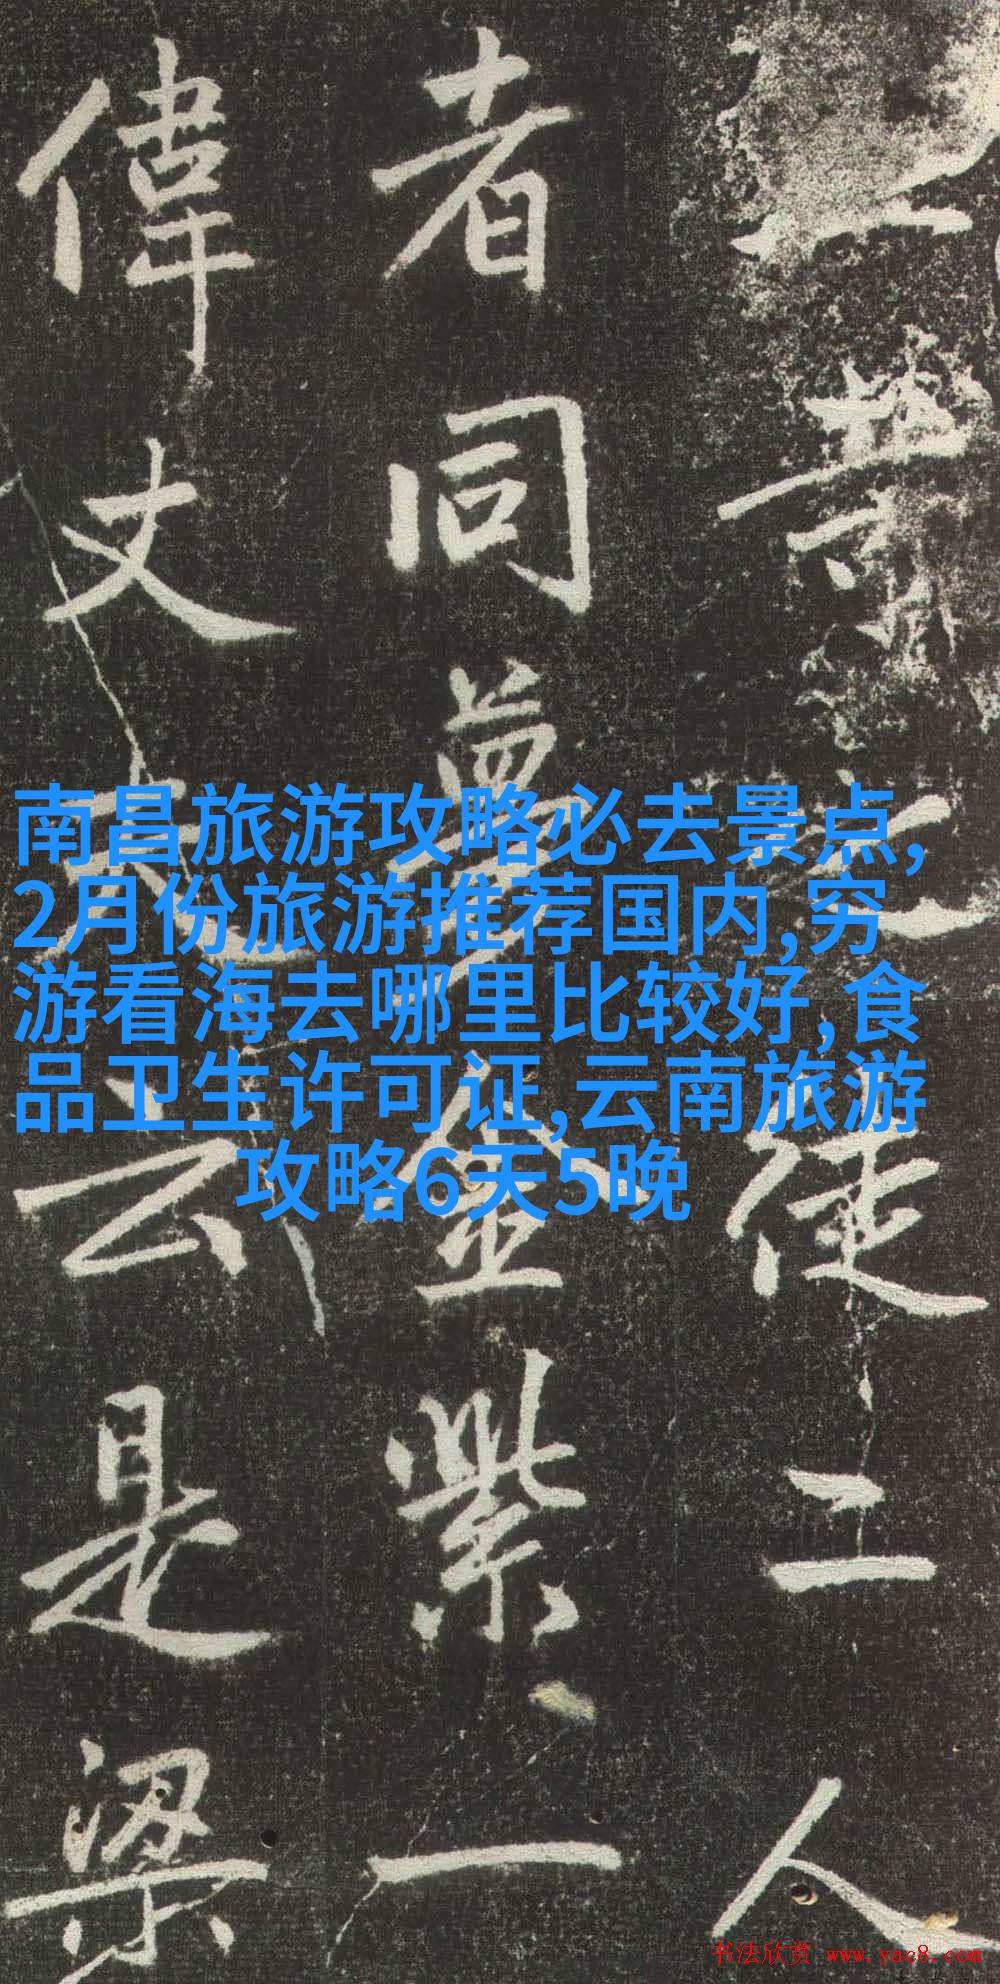 业
者同夢金紫一
偉丈夫云是梁
之徒二人
南昌旅游攻略必去景点,
2月份旅游推荐国内,穷
游看海去哪里比较好,食
品卫生许可证,云南旅游
攻略6天5晚
书法欣赏 www.yac8.com